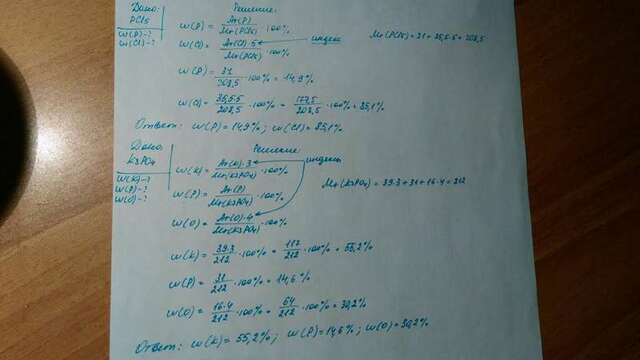 Дано: Решение:
PCl5
w(P)-?
w(Cl)-?
w(P) = Ar(P)/Mr(PCl5) · 100%
w(Cl) = Ar(Cl)·5/Mr(PCl5) · 100% индекс
Mr(PCl5) = 31 + 35,5·5 = 208,5
w(P) = 31/208,5 · 100% = 14,9%
w(Cl) = 35,5·5/208,5 · 100% = 177,5/208,5 · 100% = 85,1%
Ответ: w(P) = 14,9%; w(Cl) = 85,1%
Дано: Решение:
K3PO4
w(K)-?
w(P)-?
w(O)-?
w(K) = Ar(K)·3/Mr(K3PO4) · 100% индексы
w(P) = Ar(P)/Mr(K3PO4) · 100%
Mr(K3PO4) = 39·3 + 31 + 16·4 = 212
w(O) = Ar(O)·4/Mr(K3PO4) · 100%
w(K) = 39·3/212 · 100% = 117/212 · 100% = 55,2%
w(P) = 31/212 · 100% = 14,6%
w(O) = 16·4/212 · 100% = 64/212 · 100% = 30,2%
Ответ: w(K) = 55,2%; w(P) = 14,6%; w(O) = 30,2%